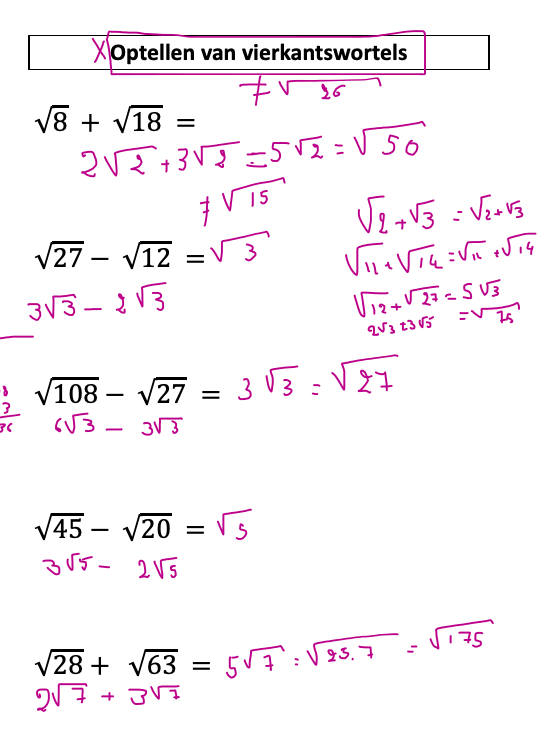 X Optellen van vierkantswortels
≠ √26
√8 + √18 =
2√2 + 3√2 = 5√2 = √50
≠ √15
√27 − √12 = √3
3√3 − 2√3
√2 + √3 = √2 + √3
√11 + √14 = √11 + √14
√12 + √27 = 5√3
= √75
√108 − √27 = 3√3 = √27
6√3 − 3√3
√45 − √20 = √5
3√5 − 2√5
√28 + √63 = 5√7 = √25.7 = √175
2√7 + 3√7